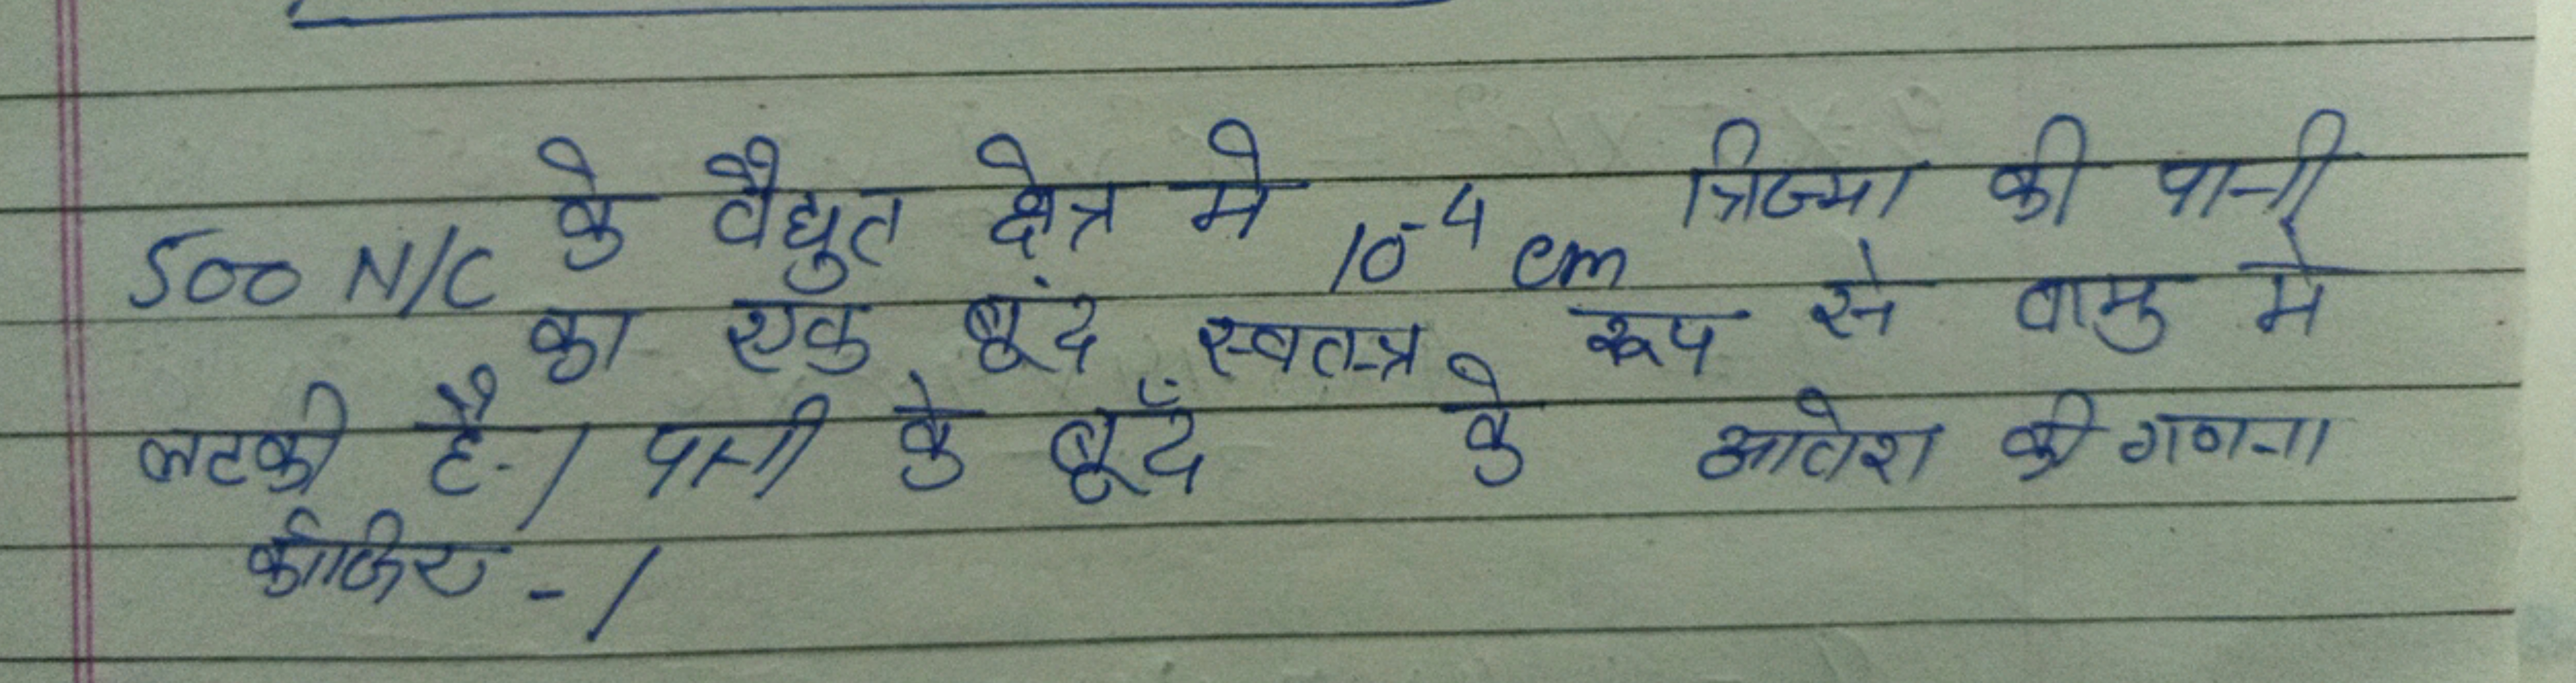 500 N/C के वैद्युत क्षेत्र मे 10⁻⁴ cm त्रिज्या की पानी
का एक बूंद स्वतन्त्र रूप से वायु मे
लटकी है-। पानी के बूँद के आवेश की गणना
कीजिए -।